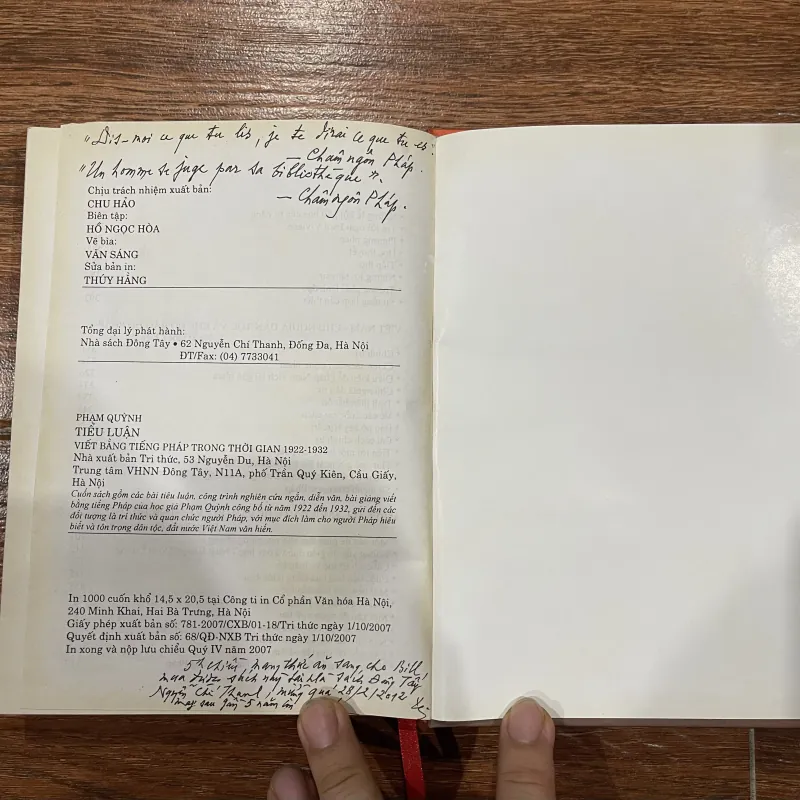 "Dis-moi ce que tu lis, je te dirai ce que tu es".
— Châm ngôn Pháp.
"Un homme se juge par sa bibliothèque".
— Châm ngôn Pháp.
Chịu trách nhiệm xuất bản:
CHU HẢO
Biên tập:
HỒ NGỌC HÒA
Vẽ bìa:
VĂN SÁNG
Sửa bản in:
THÚY HẰNG
Tổng đại lý phát hành:
Nhà sách Đông Tây • 62 Nguyễn Chí Thanh, Đống Đa, Hà Nội
ĐT/Fax: (04) 7733041
PHẠM QUỲNH
TIỂU LUẬN
VIẾT BẰNG TIẾNG PHÁP TRONG THỜI GIAN 1922-1932
Nhà xuất bản Tri thức, 53 Nguyễn Du, Hà Nội
Trung tâm VHNN Đông Tây, N11A, phố Trần Quý Kiên, Cầu Giấy,
Hà Nội
Cuốn sách gồm các bài tiểu luận, công trình nghiên cứu ngắn, diễn văn, bài giảng viết
bằng tiếng Pháp của học giả Phạm Quỳnh công bố từ năm 1922 đến 1932, gửi đến các
đối tượng là trí thức và quan chức người Pháp, với mục đích làm cho người Pháp hiểu
biết và tôn trọng dân tộc, đất nước Việt Nam văn hiến.
In 1000 cuốn khổ 14,5 x 20,5 tại Công ti in Cổ phần Văn hóa Hà Nội,
240 Minh Khai, Hai Bà Trưng, Hà Nội
Giấy phép xuất bản số: 781-2007/CXB/01-18/Tri thức ngày 1/10/2007
Quyết định xuất bản số: 68/QĐ-NXB Tri thức ngày 1/10/2007
In xong và nộp lưu chiểu Quý IV năm 2007
5h chiều, mang thức ăn sang cho Bill
mua được sách này tại Nhà sách Đông Tây
Nguyễn Chí Thanh, mừng quá 28/2/2012
may sau gần 5 năm in